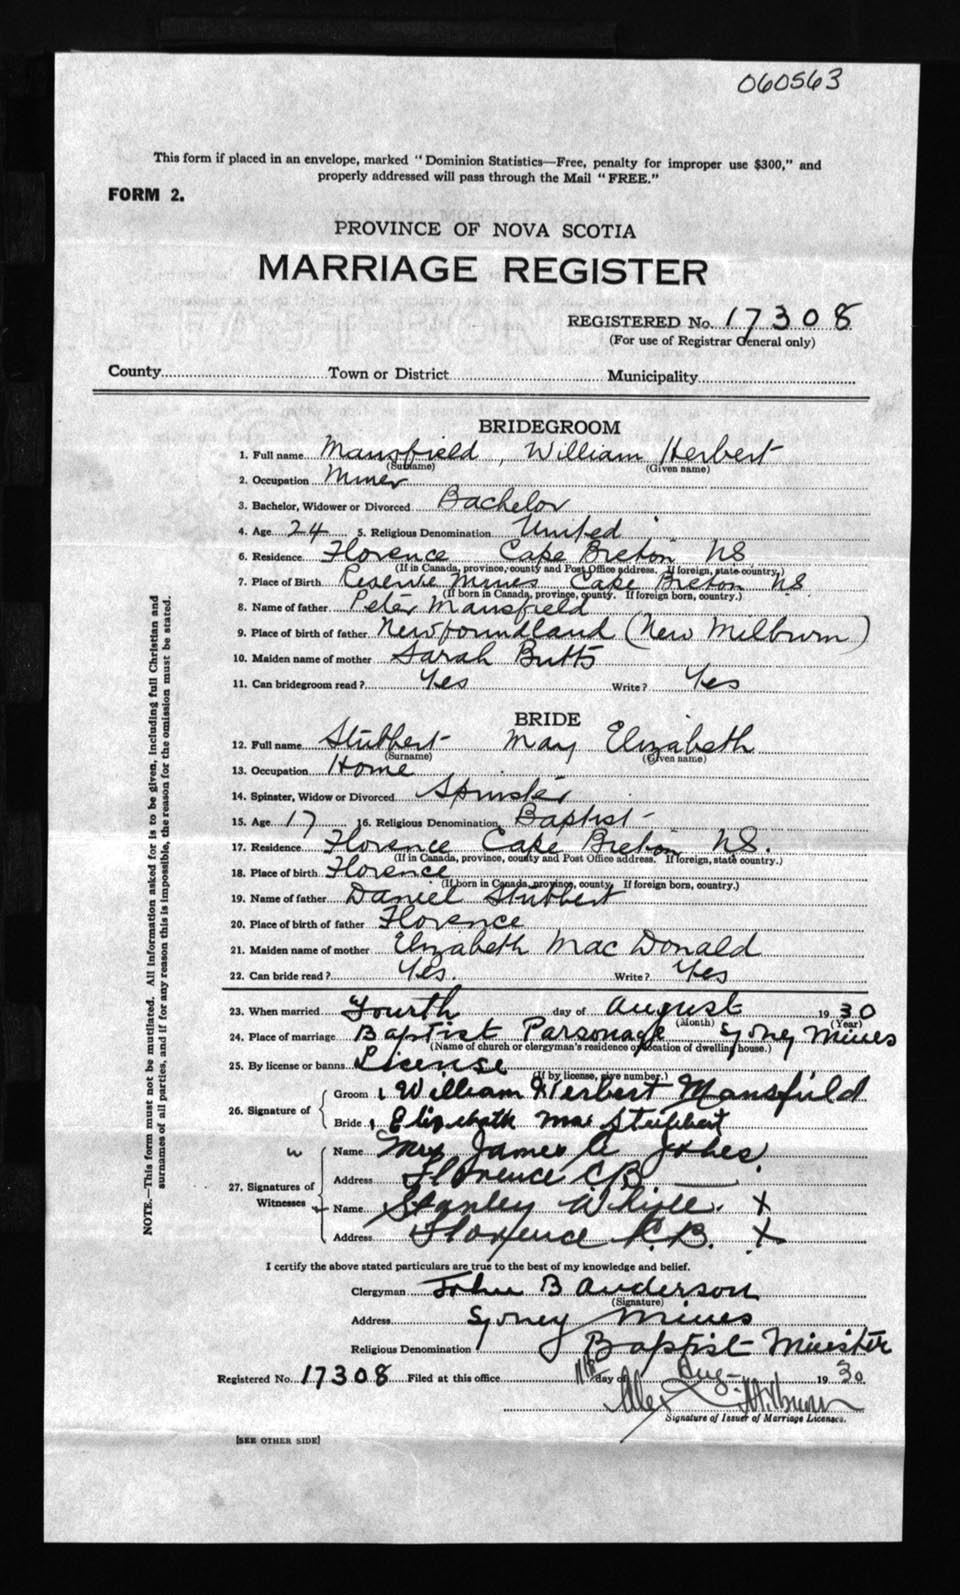 060563
This form if placed in an envelope, marked "Dominion Statistics—Free, penalty for improper use $300," and
properly addressed will pass through the Mail "FREE."
FORM 2.
PROVINCE OF NOVA SCOTIA
MARRIAGE REGISTER
REGISTERED No. 17308
(For use of Registrar General only)
County Town or District Municipality
BRIDEGROOM
1. Full name Mansfield, William Herbert
(Surname) (Given name)
2. Occupation Miner
3. Bachelor, Widower or Divorced Bachelor
4. Age 24 5. Religious Denomination United
6. Residence Florence Cape Breton NS
(If in Canada, province, county and Post Office address. If foreign, state country.)
7. Place of Birth Reserve Mines Cape Breton N.S.
(If born in Canada, province, county. If foreign born, country.)
8. Name of father Peter Mansfield
9. Place of birth of father Newfoundland (New Milburn)
10. Maiden name of mother Sarah Butts
11. Can bridegroom read? Yes Write? Yes
BRIDE
12. Full name Stubbert Mary Elizabeth
(Surname) (Given name)
13. Occupation Home
14. Spinster, Widow or Divorced Spinster
15. Age 17 16. Religious Denomination Baptist
17. Residence Florence Cape Breton N.S.
(If in Canada, province, county and Post Office address. If foreign, state country.)
18. Place of birth Florence
(If born in Canada, province, county. If foreign born, country.)
19. Name of father Daniel Stubbert
20. Place of birth of father Florence
21. Maiden name of mother Elizabeth MacDonald
22. Can bride read? Yes. Write? Yes
23. When married Fourth day of August 1930
(Month) (Year)
24. Place of marriage Baptist Parsonage Sydney Mines
(Name of church or clergyman's residence or location of dwelling house.)
25. By license or banns License
(If by license, give number.)
26. Signature of
Groom William Herbert Mansfield
Bride Elizebath Mae Stubbert
27. Signatures of Witnesses
Name Mrs James A Jobes
Address Florence C.B.
Name Stanley X
Address Florence C.B. X
I certify the above stated particulars are true to the best of my knowledge and belief.
Clergyman John B Anderson
(Signature)
Address Sydney Mines
Religious Denomination Baptist Minister
Registered No. 17308 Filed at this office 11th day of Aug 1930
Alex
Signature of Issuer of Marriage Licenses.
[SEE OTHER SIDE]
NOTE.—This form must not be mutilated. All information asked for is to be given, including full Christian and
surnames of all parties, and if for any reason this is impossible, the reason for the omission must be stated.